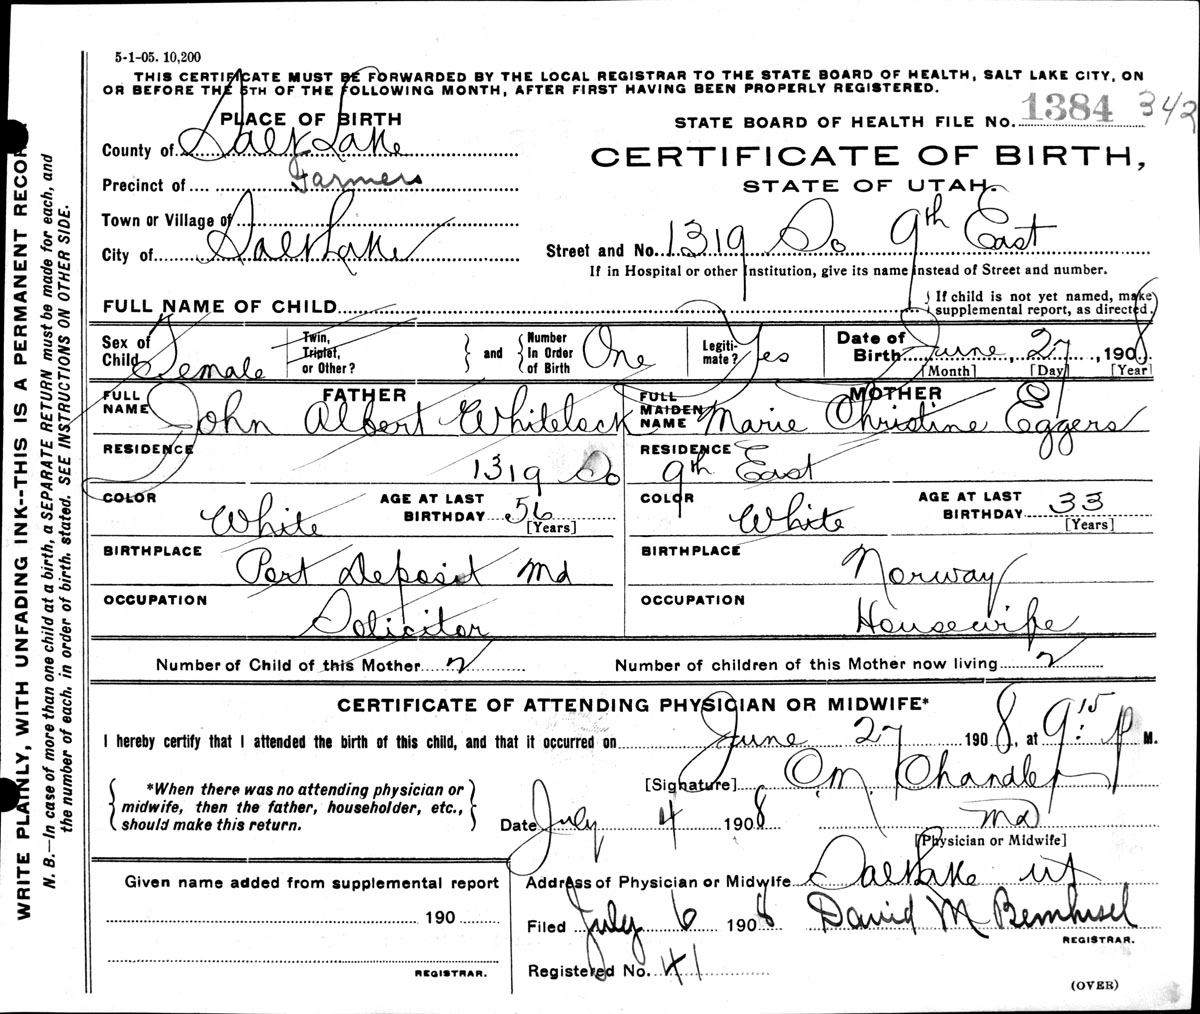 5-1-05. 10,200
THIS CERTIFICATE MUST BE FORWARDED BY THE LOCAL REGISTRAR TO THE STATE BOARD OF HEALTH, SALT LAKE CITY, ON
OR BEFORE THE 5TH OF THE FOLLOWING MONTH, AFTER FIRST HAVING BEEN PROPERLY REGISTERED.
PLACE OF BIRTH
County of Salt Lake
Precinct of Farmers
Town or Village of
City of Salt Lake
STATE BOARD OF HEALTH FILE No. 1384 342
CERTIFICATE OF BIRTH,
STATE OF UTAH.
Street and No. 1319 So 9th East
If in Hospital or other Institution, give its name instead of Street and number.
FULL NAME OF CHILD
If child is not yet named, make
supplemental report, as directed.
Sex of Child Female
Twin, Triplet, or Other?
and
Number In Order of Birth One
Legiti- mate? Yes
Date of Birth June, 27, 1908
[Month] [Day] [Year]
FATHER
FULL NAME John Albert Whitelock
MOTHER
FULL MAIDEN NAME Marie Christine Eggers
RESIDENCE RESIDENCE
1319 So 9th East
COLOR White
AGE AT LAST BIRTHDAY 56 [Years]
COLOR White
AGE AT LAST BIRTHDAY 33 [Years]
BIRTHPLACE Port Deposit Md
BIRTHPLACE Norway
OCCUPATION Solicitor
OCCUPATION Housewife
Number of Child of this Mother 2
Number of children of this Mother now living 2
CERTIFICATE OF ATTENDING PHYSICIAN OR MIDWIFE*
I hereby certify that I attended the birth of this child, and that it occurred on June 27 1908, at 9:15 P M.
*When there was no attending physician or
midwife, then the father, householder, etc.,
should make this return.
[Signature] C.M. Chandler
Date July 4 1908 MD
[Physician or Midwife]
Given name added from supplemental report
190
REGISTRAR.
Address of Physician or Midwife Salt Lake ut
Filed July 6 1908 David M Bernhisel
REGISTRAR.
Registered No. 41
(OVER)
WRITE PLAINLY, WITH UNFADING INK--THIS IS A PERMANENT RECOR
N. B.—In case of more than one child at a birth, a SEPARATE RETURN must be made for each, and
the number of each, in order of birth, stated. SEE INSTRUCTIONS ON OTHER SIDE.